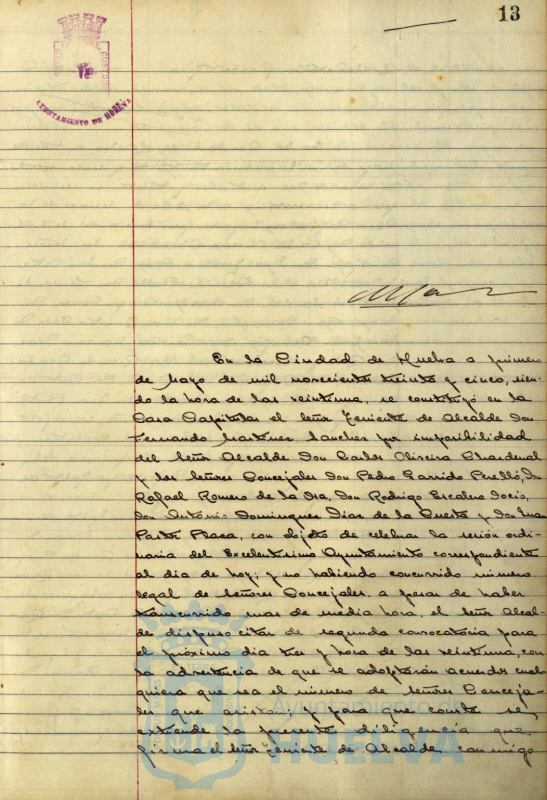 13
AYUNTAMIENTO DE HUELVA
En la Ciudad de Huelva a primero
de Mayo de mil novecientos treinta y cinco, sien-
do la hora de las veintiuna, se constituyó en la
Casa Capitular el Señor Teniente de Alcalde Don
Fernando Martinez Sanchez por imposibilidad
del Señor Alcalde Don Carlos Oliveira
y los Señores Concejales Don Pedro Garrido Perelló, Don
Rafael Romero de la Osa, Don Rodrigo Escalera Socio,
Don Antonio Dominguez Diaz de la Cuesta y Don Juan
Pastor Plaza, con objeto de celebrar la sesión ordi-
naria del Excelentísimo Ayuntamiento correspondiente
al dia de hoy; y no habiendo concurrido número
legal de Señores Concejales, a pesar de haber
transcurrido mas de media hora, el Señor Alcal-
de dispuso citar de segunda convocatoria para
el próximo dia tres y hora de las veintiuna, con
la advertencia de que se adoptarán acuerdos cual-
quiera que sea el número de Señores Conceja-
les que asistan; y para que conste se
extiende la presente diligencia que
firma el Señor Teniente de Alcalde conmigo
Ayuntamiento de
HUELVA